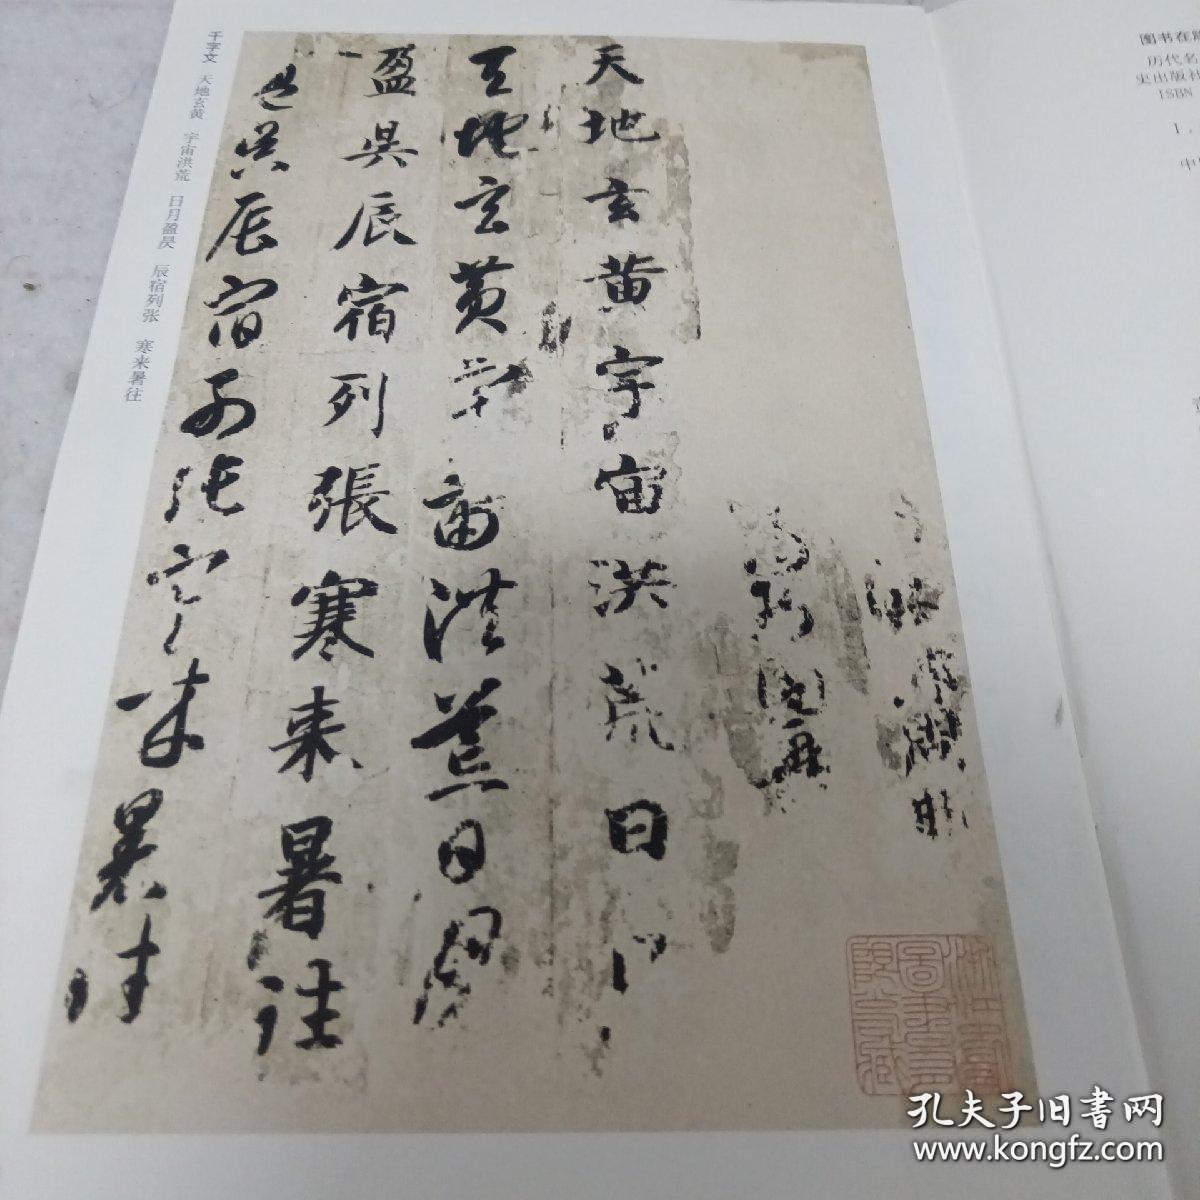 天地玄黄宇宙洪荒日月
天地玄黄宇宙洪荒日月
盈昃辰宿列張寒来暑往
盈昃辰宿列張寒来暑往
千字文 天地玄黄 宇宙洪荒 日月盈昃 辰宿列张 寒来暑往
图书在版
历代名
史出版社
ISBN
1.
中
孔夫子旧书网
www.kongfz.com